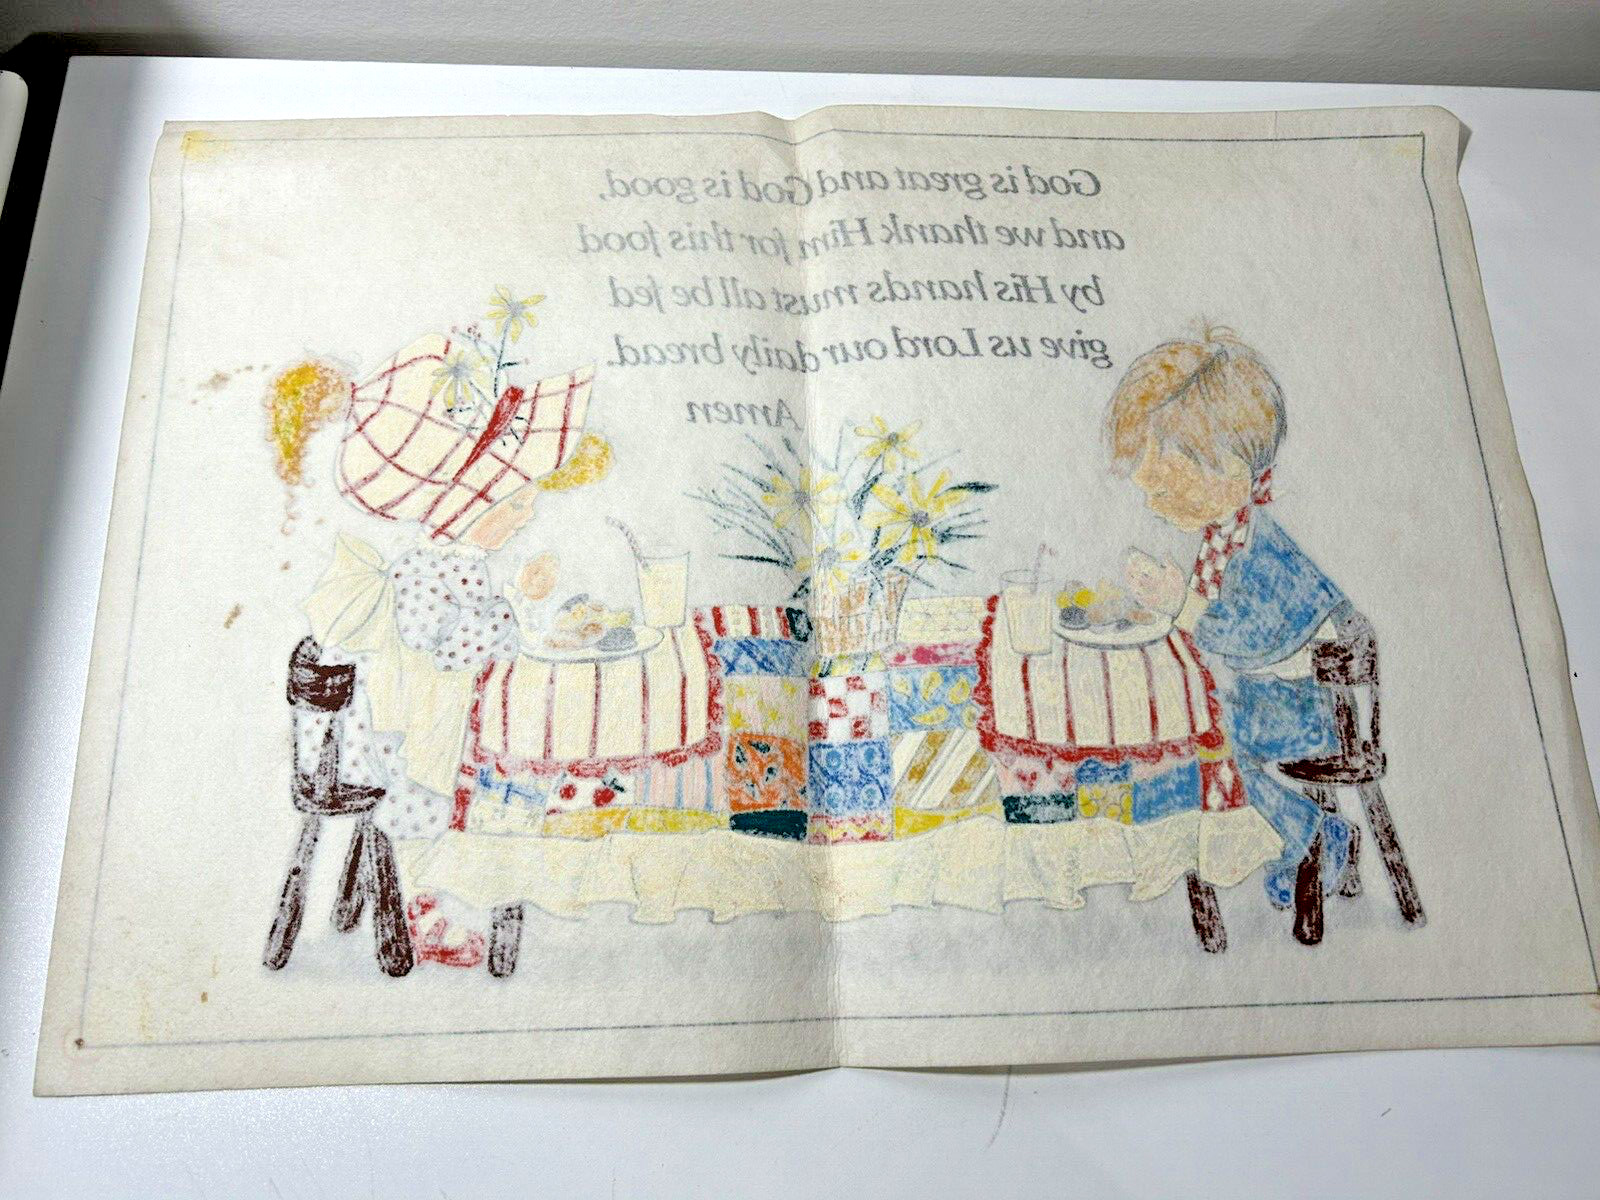 God is great and God is good,
and we thank Him for this food
by His hands must all be fed
give us Lord our daily bread.
Amen